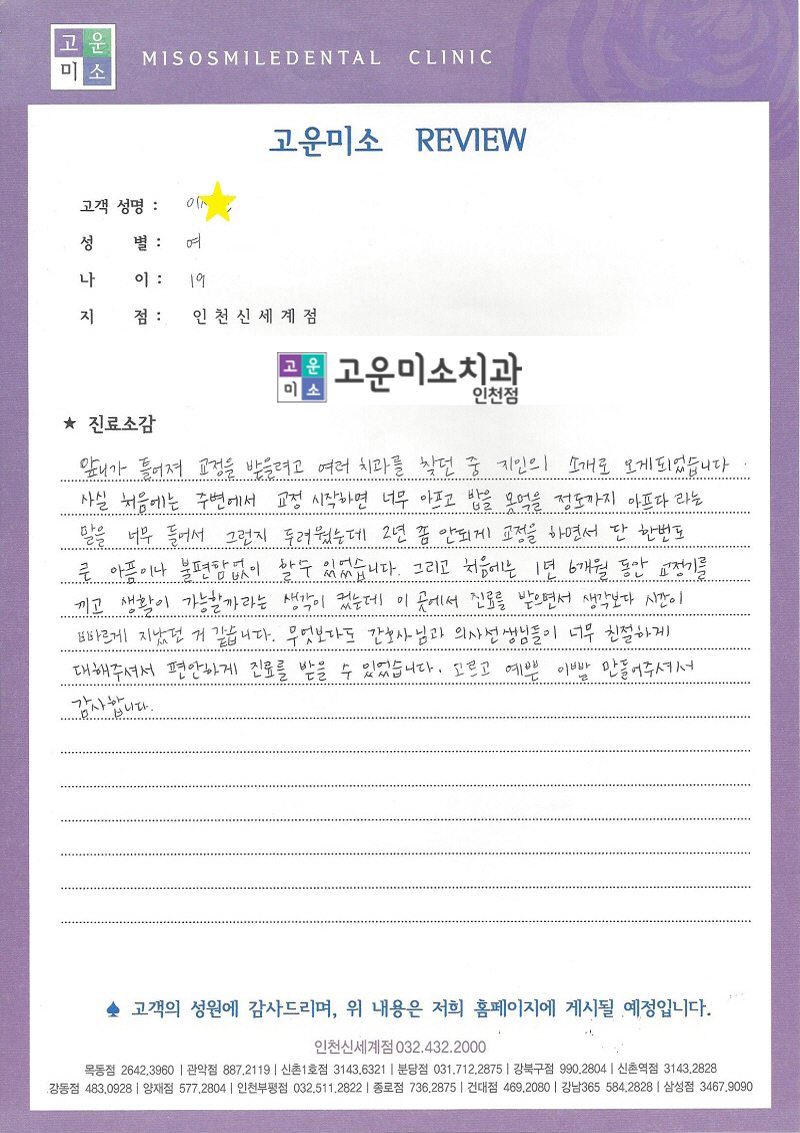 고운
미소
MISOSMILEDENTAL CLINIC
고운미소 REVIEW
고객 성명 : 이
성 별 : 여
나 이 : 19
지 점 : 인천신세계점
고운
미소
고운미소치과
인천점
★ 진료소감
앞니가 틀어져 교정을 받을려고 여러 치과를 찾던 중 지인의 소개로 오게되었습니다.
사실 처음에는 주변에서 교정 시작하면 너무 아프고 밥을 못먹을 정도까지 아프다 라는
말을 너무 들어서 그런지 두려웠는데 2년 쫌 안되게 교정을 하면서 단 한번도
큰 아픔이나 불편함없이 할 수 있었습니다. 그리고 처음에는 1년 6개월 동안 교정기를
끼고 생활이 가능할까라는 생각이 컸는데 이 곳에서 진료를 받으면서 생각보다 시간이
빠르게 지났던 거 같습니다. 무엇보다도 간호사님과 의사선생님들이 너무 친절하게
대해주셔서 편안하게 진료를 받을 수 있었습니다. 고르고 예쁜 이빨 만들어주셔서
감사합니다.
♠ 고객의 성원에 감사드리며, 위 내용은 저희 홈페이지에 게시될 예정입니다.
인천신세계점 032.432.2000
목동점 2642.3960 | 관악점 887.2119 | 신촌1호점 3143.6321 | 분당점 031.712.2875 | 강북구점 990.2804 | 신촌역점 3143.2828
강동점 483.0928 | 양재점 577.2804 | 인천부평점 032.511.2822 | 종로점 736.2875 | 건대점 469.2080 | 강남365 584.2828 | 삼성점 3467.9090